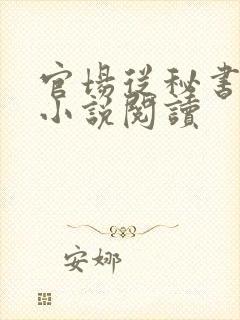 官場從秘書
小說閱讀
安娜